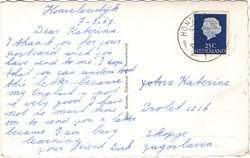 Honselersdijk
7-8-'67.
Dear Katerina.
I thank you for your
postcard wich you
have send to me. I hope
that you can understand
this letter because
my English is not
so very good. I have
not so much time
to send you a letter
because I am busy
learning.
your friend Dirk
HONS
25C
NEDERLAND
Jotova Katerina
Skopje
Jugoslavia.